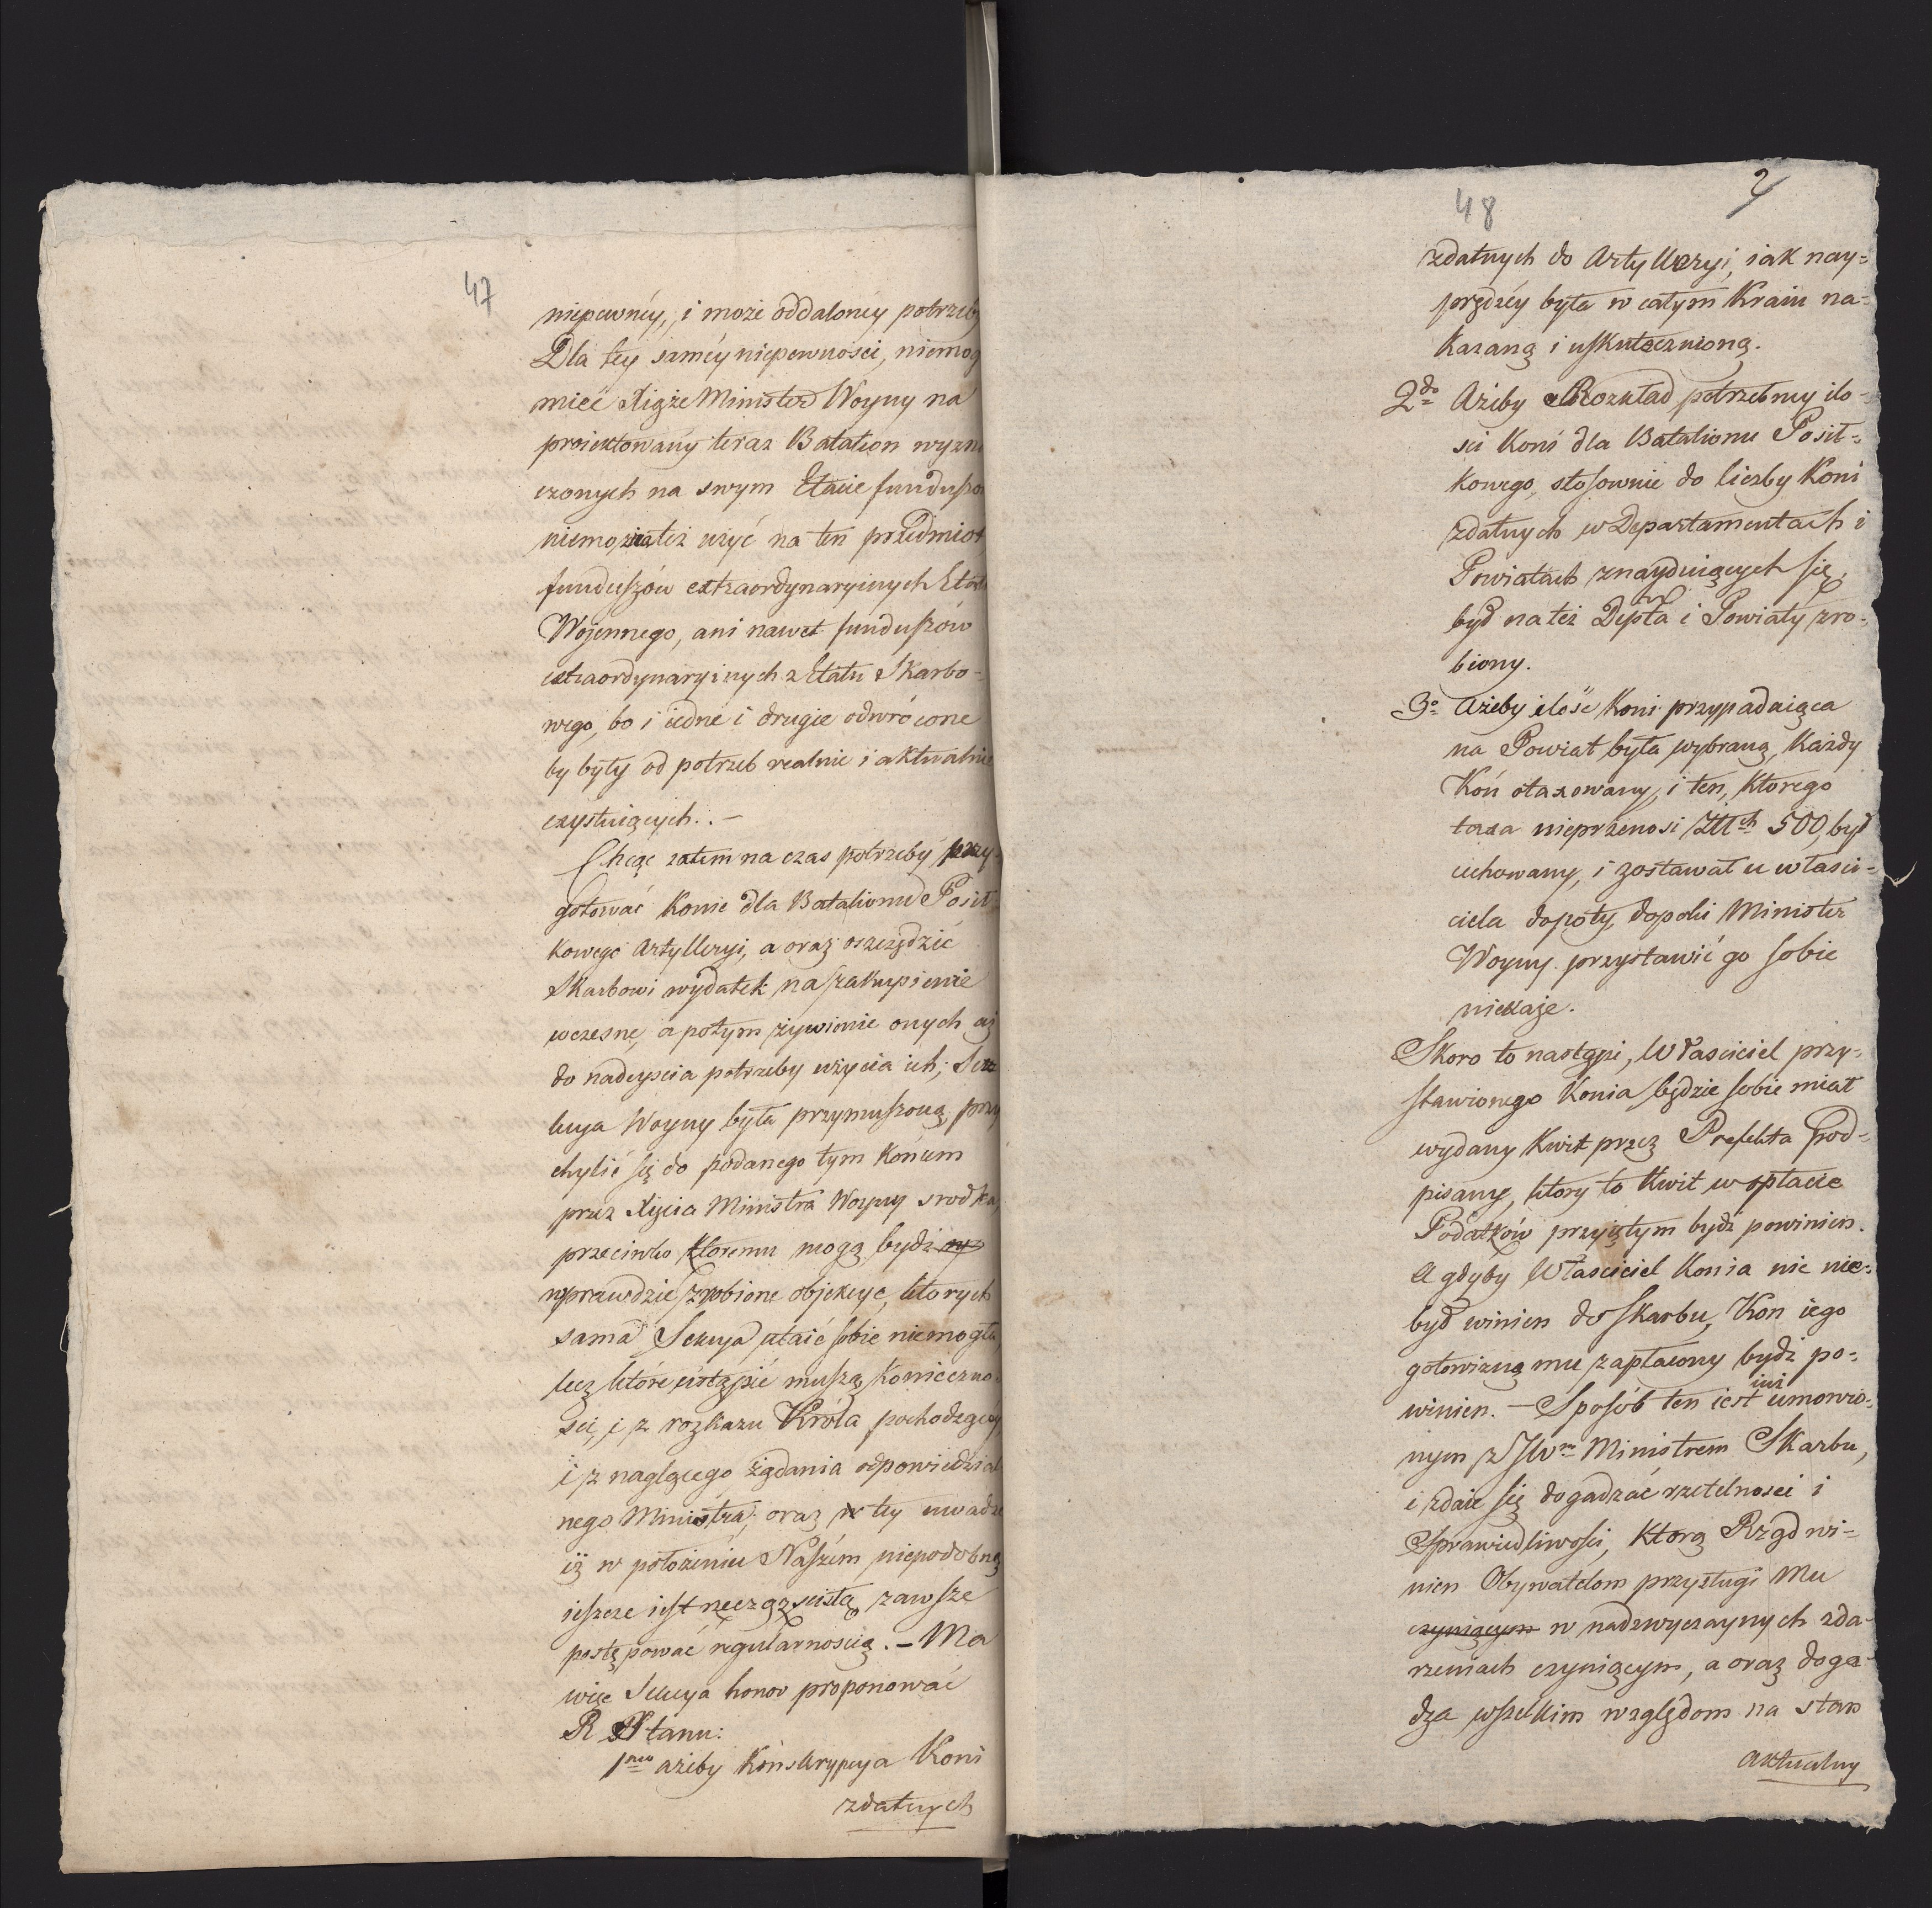 47
niepewnéy, i może oddalonéy potrzeby
Dla tey saméy niepewności, niemog
mieć Xiąże Minister Woyny na
proiektowany teraz Batalion wyzna
czonych na swym Etacie funduszo
niemożna też użyć na ten przedmiot
funduszów extraordynaryinych Etat
Wojennego, ani nawet funduszów
extraordynaryinych z Etatu Skarbo-
wego, bo i iedne i drugie odwrócone
by były od potrzeb realnie i aktualnie
exystuiących. . —
Chcąc zatem na czas potrzeby przy-
gotować Konie dla Batalionu Posił
kowego Artylleryi, a oraz oszczędzić
Skarbowi wydatek na zakupienie
wczesne, a potym żywienie onych aż
do nadeyscia potrzeby użycia ich; Sek
cya Woyny była przymuszoną, przy
chylić się do podanego tym Końcem
przez Xięcia Ministra Woyny srodka,
przeciwko któremu mogą bydź
wprawdzie zrobione objekcye, których
sama Sekcya utaić sobie niemogła,
lecz które ustąpić muszą Konieczno-
sci, i z rozkazu Króla pochodzącey,
i z naglącego żądania odpowiedzial
nego Ministra; oraz w tey uwadze
iż w położeniu Naszém niepodobną
ieszcze iest rzeczą scisłą zawsze
postępować regularnoscią. — Ma
więc Sekcya honor proponować
R Stanu:
1mo ażeby Konskrypcya Koni
zdatnych
48
2
zdatnych do Artylleryi, iak nay=
prędzéy była w całym Kraiu na=
Kazaną i uskutecznioną.
2do Ażeby Rozkład potrzebney ilo-
sci Koni dla Batalionu Posił=
Kowego, stosownie do liczby Koni
zdatnych w Departamentach i
Powiatach znayduiących się,
był na też Depta i Powiaty zro-
biony.
3o Ażeby ilość Koni przypadaiąca
na Powiat była wybraną, Każdy
Koń otaxowany, i ten, którego
taxa nieprzenosi Złłch 500, był
cechowany, i zostawał u właści-
ciela dopóty, dopóki Minister
Woyny przystawić go sobie
niekaże.
Skoro to nastąpi, Właściciel przy-
stawionego Konia będzie sobie miał
wydany Kwit przez Prefekta pod-
pisany, który to Kwit w opłacie
Podatków przyiętym bydź powinien.
A gdyby Właściciel Konia nic nie=
był winien do Skarbu, Kon iego
gotowizną mu zapłacony bydź po=
winien. — Sposób ten iest iuż umówio=
nym z JWm Ministrem Skarbu,
i zdaie się dogadzać rzetelnosci i
Sprawiedliwości, Którą Rząd wi=
nien Obywatelom przysługi Mu
czyniącym w nadzwyczaynych zda-
rzeniach czyniącym, a oraz doga-
dza wszelkim względom na stan
aktualny